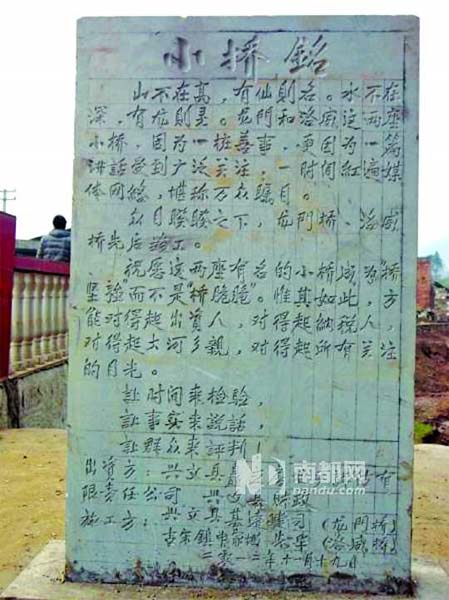 小桥銘
山不在高，有仙則名。水不在
深，有龙則灵。龙門和洛威这两座
小桥，因为一桩善事，更因为一篇
讲話受到广泛关注，一时间紅遍媒
体网絡，堪称万众瞩目。
众目睽睽之下，龙門桥、洛威
桥先后竣工。
祝愿这两座有名的小桥成为“桥
坚強”而不是“桥脆脆”。惟其如此，方
能对得起出資人，对得起納税人，
对得起大河乡親，对得起所有关注
的目光。
让时间来检验，
让事实来説話，
让群众来評判！
出資方：兴文县
限责任公司 兴文县財政
施工方：兴文县基 司（龙门桥）
古宋鎮 （洛威桥）
二零一二年十一月十九日
南都网
nandu.com